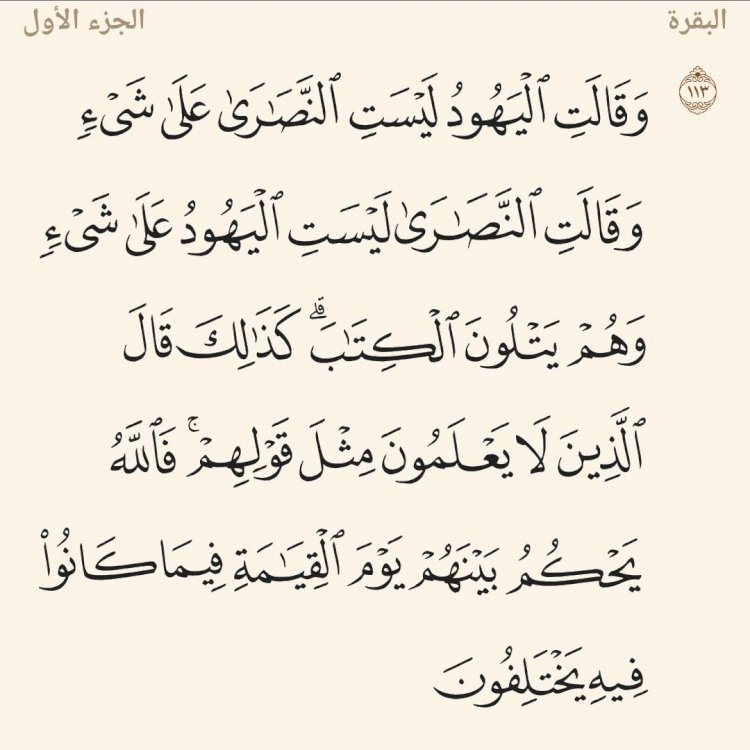 البقرة الجزء الأول
١١٣ وَقَالَتِ ٱلْيَهُودُ لَيْسَتِ ٱلنَّصَـٰرَىٰ عَلَىٰ شَىْءٍ
وَقَالَتِ ٱلنَّصَـٰرَىٰ لَيْسَتِ ٱلْيَهُودُ عَلَىٰ شَىْءٍ
وَهُمْ يَتْلُونَ ٱلْكِتَـٰبَ ۗ كَذَٰلِكَ قَالَ
ٱلَّذِينَ لَا يَعْلَمُونَ مِثْلَ قَوْلِهِمْ ۚ فَٱللَّهُ
يَحْكُمُ بَيْنَهُمْ يَوْمَ ٱلْقِيَـٰمَةِ فِيمَا كَانُوا۟
فِيهِ يَخْتَلِفُونَ